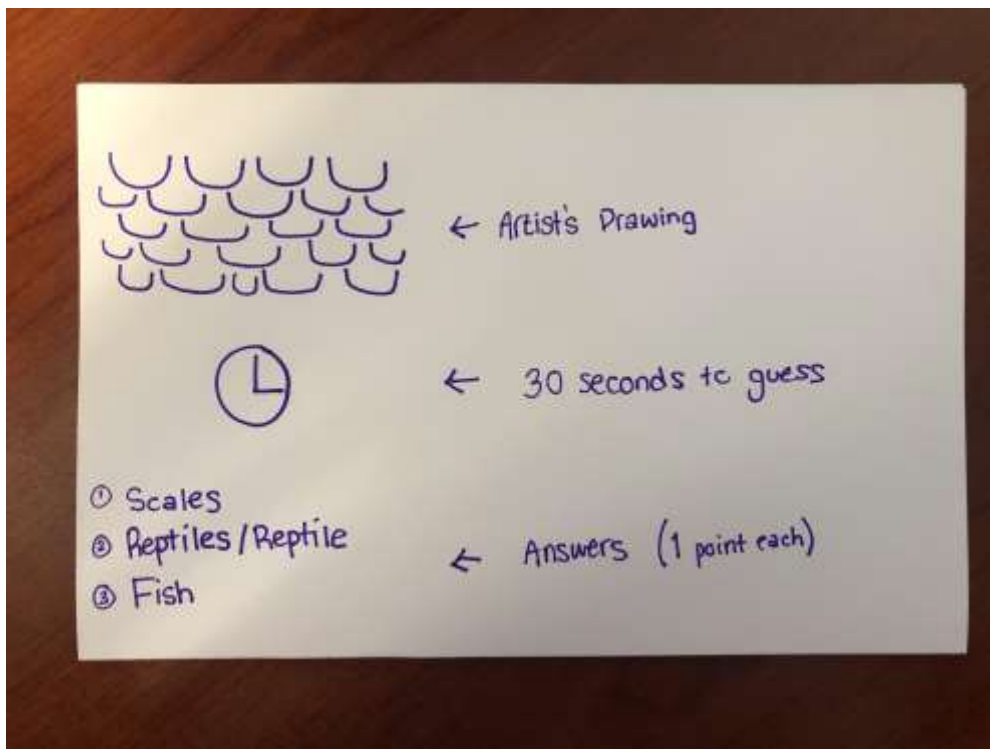 ← Artist's Drawing
← 30 seconds to guess
① Scales
② Reptiles/Reptile
← Answers (1 point each)
③ Fish